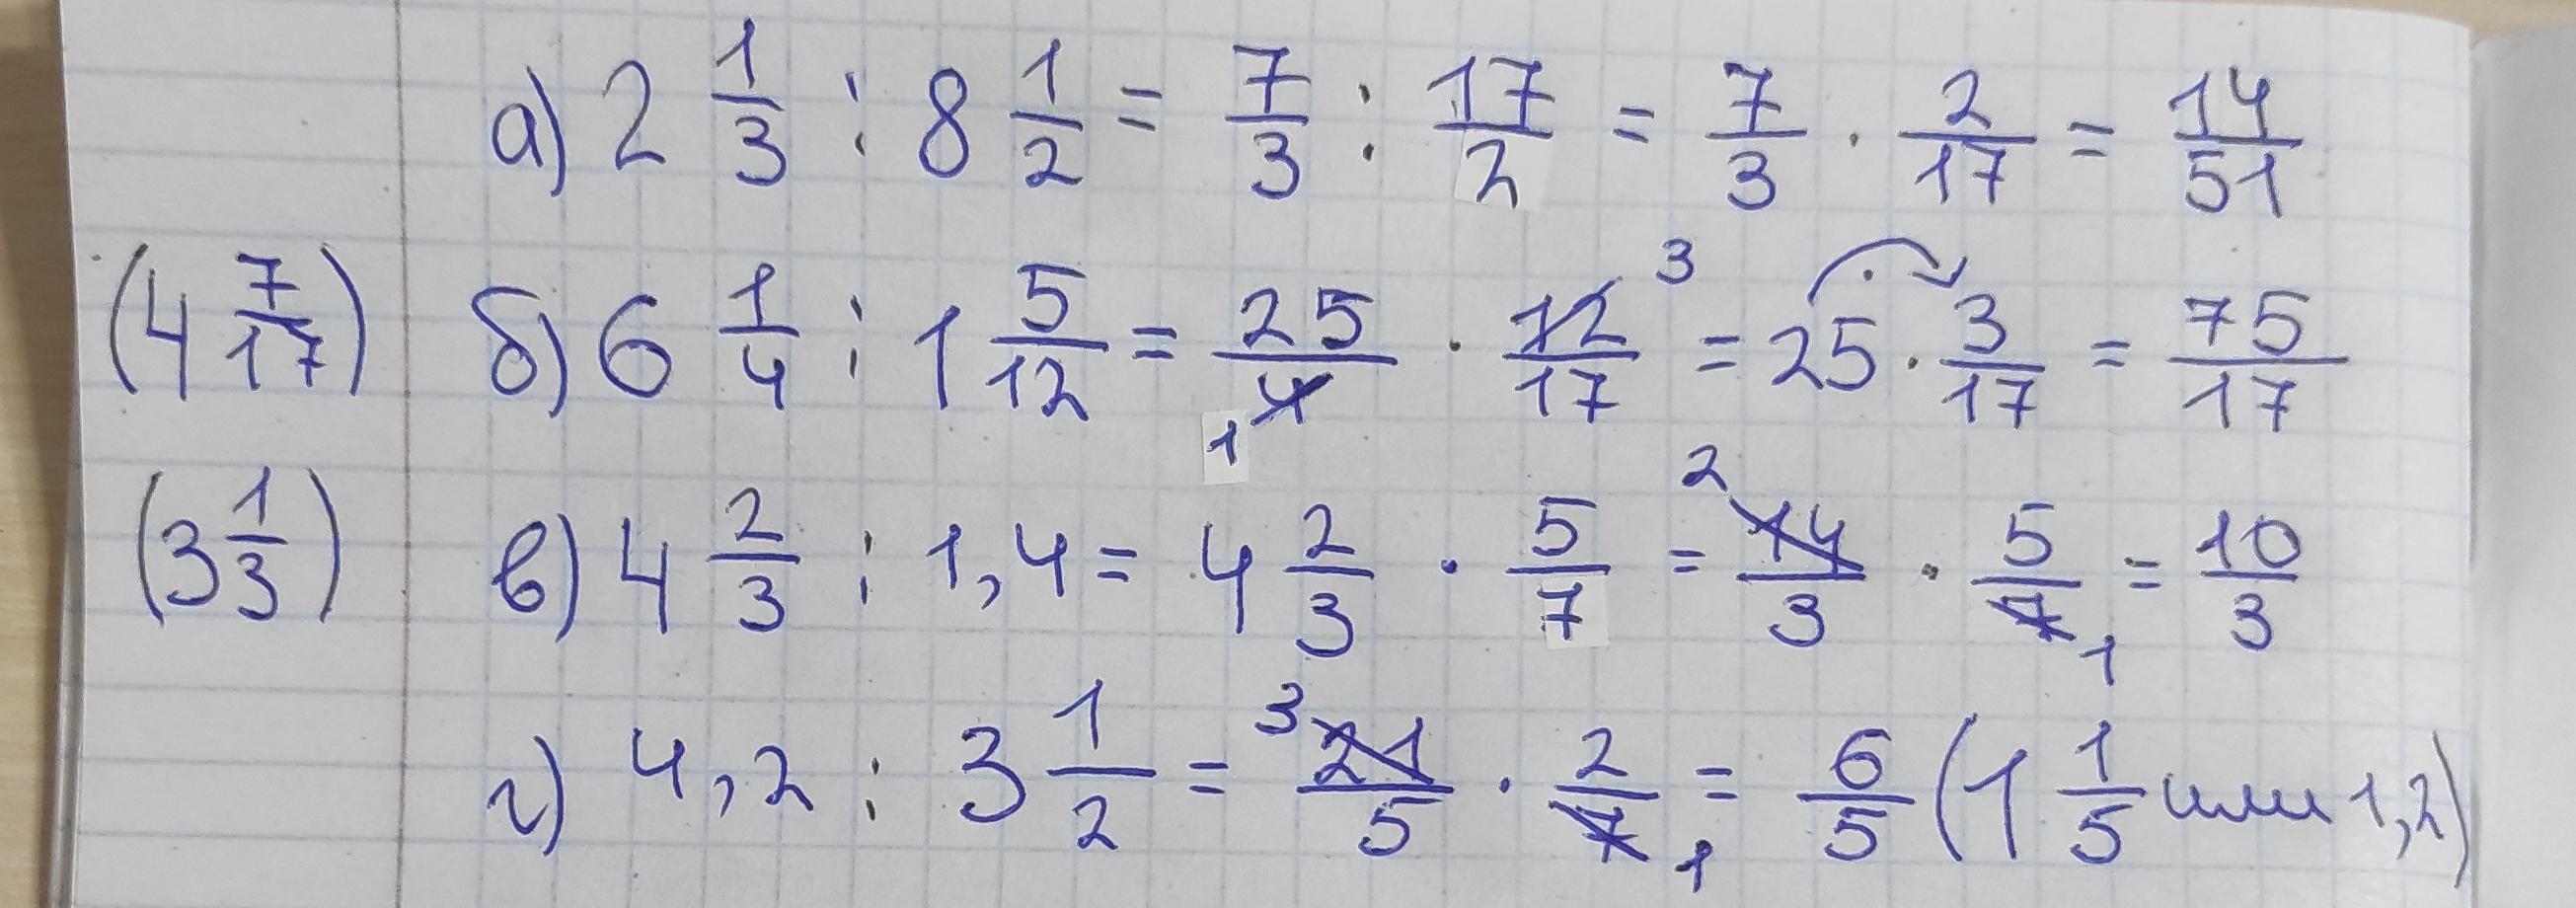 а) 2 1/3 : 8 1/2 = 7/3 : 17/2 = 7/3 · 2/17 = 14/51
(4 7/17) б) 6 1/4 : 1 5/12 = 25/4 1 · 12/17 3 = 25 · 3/17 = 75/17
(3 1/3) в) 4 2/3 : 1,4 = 4 2/3 · 5/7 = 2 14/3 · 5/7 1 = 10/3
г) 4,2 : 3 1/2 = 3 21/5 · 2/7 1 = 6/5 (1 1/5 или 1,2)